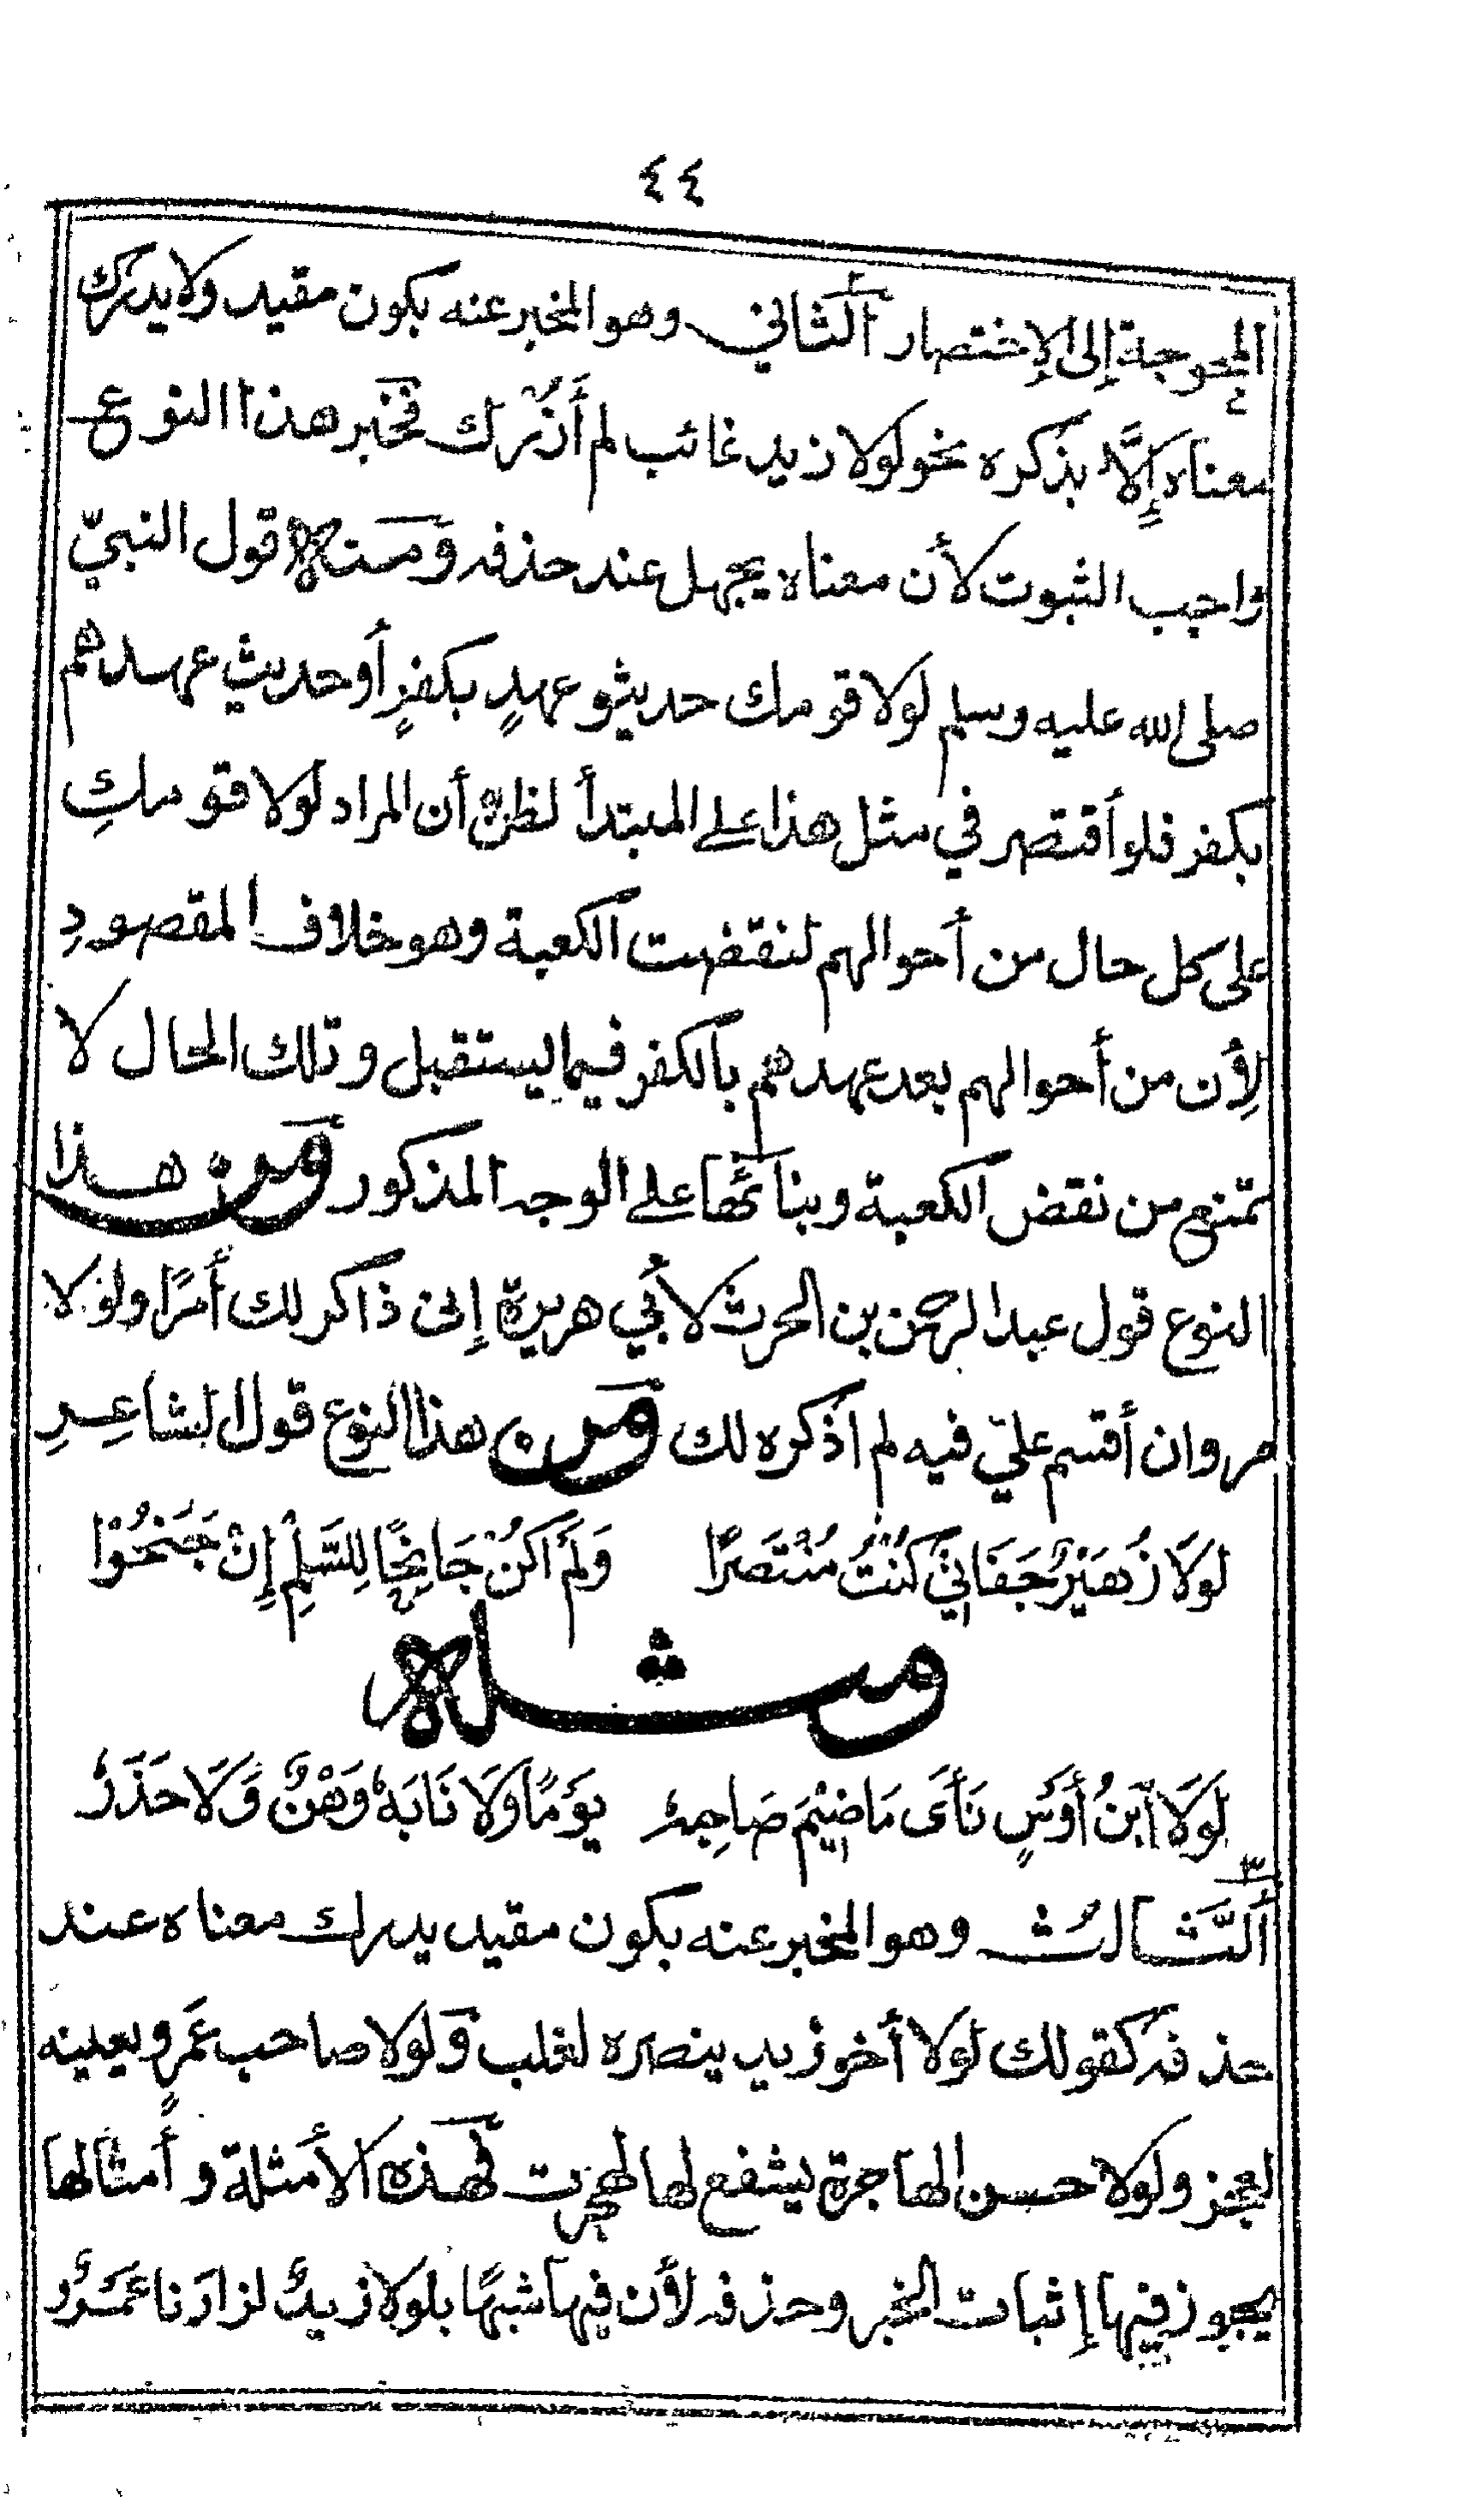 ٤٤
المحوجة إلى الإختصار ألثاني وهو المخبر عنه بكون مقيد ولا يدرك
معناه إلَّا بذكره نحو لولا زيد غائب لم أزُرْك فخبر هذا النوع
واجب الثبوت لأن معناه يجهل عند حذفه وَمنه قول النبيّ
صلى الله عليه وسلم لولا قومك حديثو عهدٍ بكفرٍ أو حديث عهدهم
بكفر فلو أقتصر في مثل هذا على المبتدأ لظن أن المراد لولا قومكِ
على كل حال من أحوالهم لنقضت الكعبة وهو خلاف المقصودِ
لِأن من أحوالهم بعد عهدهم بالكفر فيما يستقبل وتلك الحال لا
تمنع من نقض الكعبة وبنائها على الوجه المذكور وَمن هذا
النوع قول عبد الرحمن بن الحرث لأبي هريرة إنى ذاكر لك أمرًا ولولا
مروان أقسم عليّ فيه لم اذكره لك وَمن هذا النوع قول الشاعِرِ
لولَا زُهَيْرٌ جَفَانِيَ كُنْتُ مُنْتَصِرًا وَلَمْ اَكُنْ جَانِحًا لِلسَّلِمْ إِنْ جَنَحُوْا
ومثله
لَوْلَا اَبْنُ أَوْسٍ نَأَى مَا ضِيْمَ صَاحِبُهُ يَوْمًا وَلَا نَابَهُ وَهْنٌ وَّلَا حَذَرُ
٣
اَلثَّالثُ وهو المخبر عنه بكون مقيد يدرك معناه عند
حذفه كقولك لولا أخو زيد ينصره لغلب وَلولا صاحب عَمرٍو يعينه
لعجز ولولا حسن الهاجرة يشفع لها لهجرت فَهذه الأمثلة وأمثالها
يجوز فيها إثبات الخبر وحذفه لأن فيها شبهًا بلولا زيدٌ لزارَنا عَمْرٌو